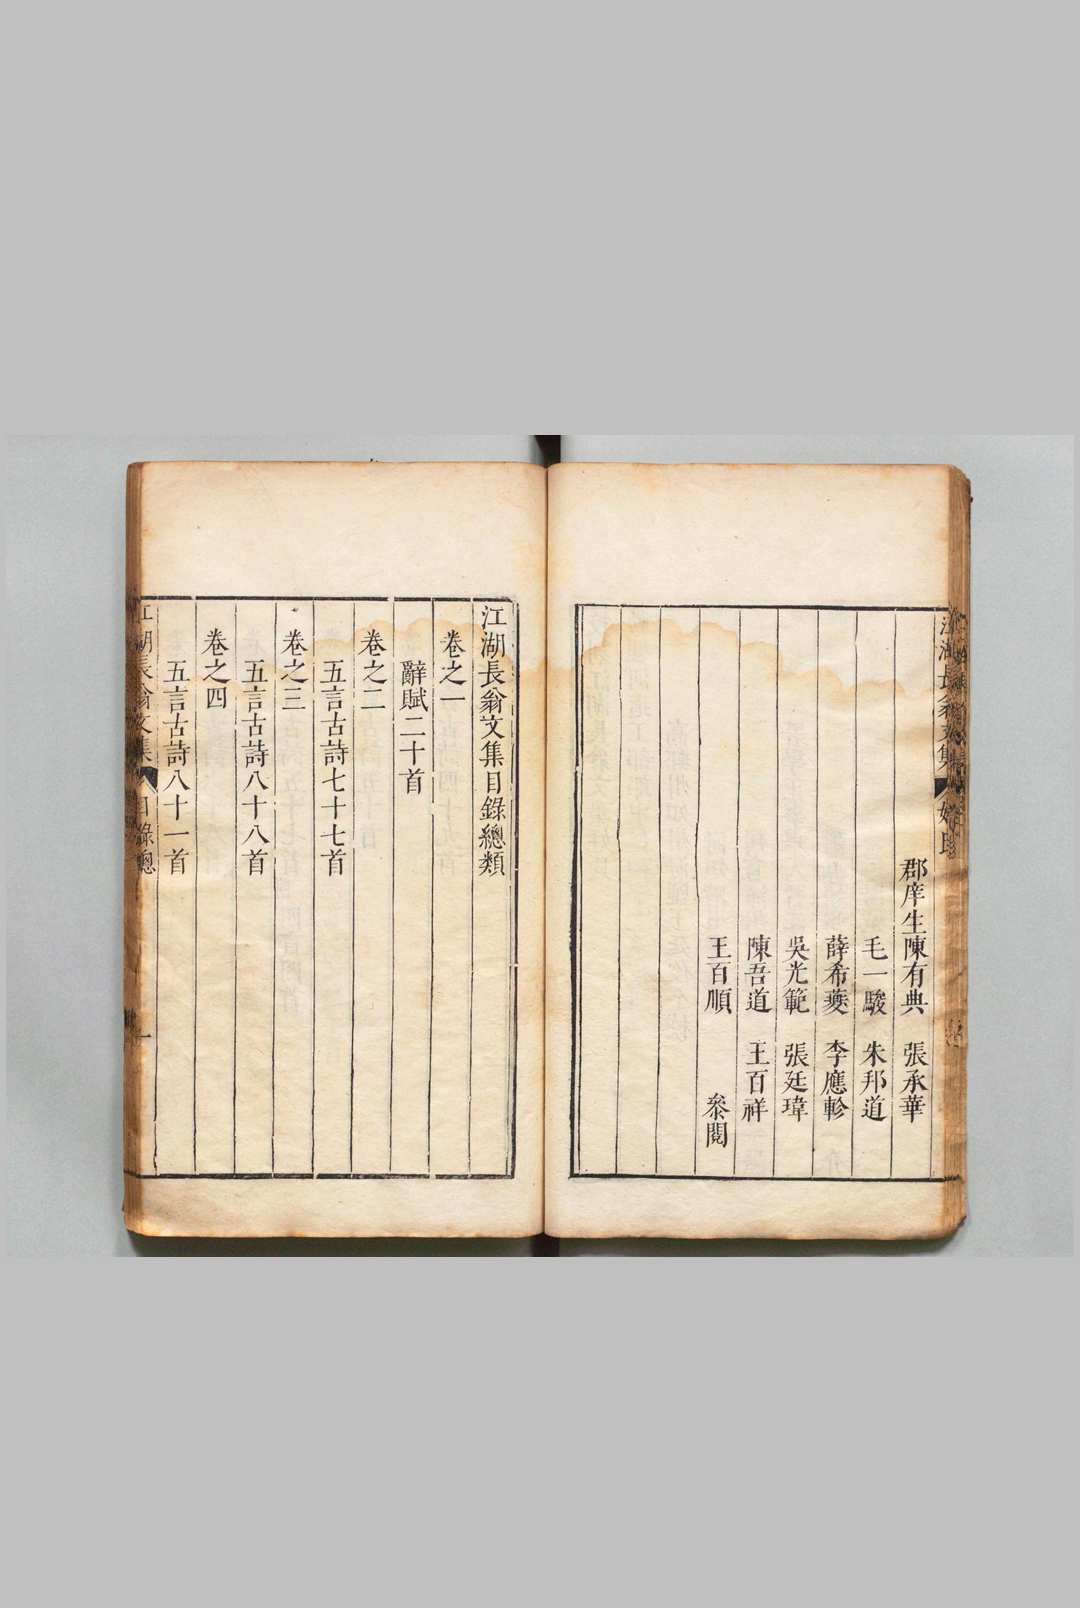 江湖長翁文集
姓氏
郡庠生陳有典 張承華
毛一駿 朱邦道
薛希夔 李應軫
吳光範 張廷瑋
陳吾道 王百祥
王百順 叅閱
江湖長翁文集目錄總類
卷之一
辭賦二十首
卷之二
五言古詩七十七首
卷之三
五言古詩八十八首
卷之四
五言古詩八十一首
江湖長翁文集
目錄總
一